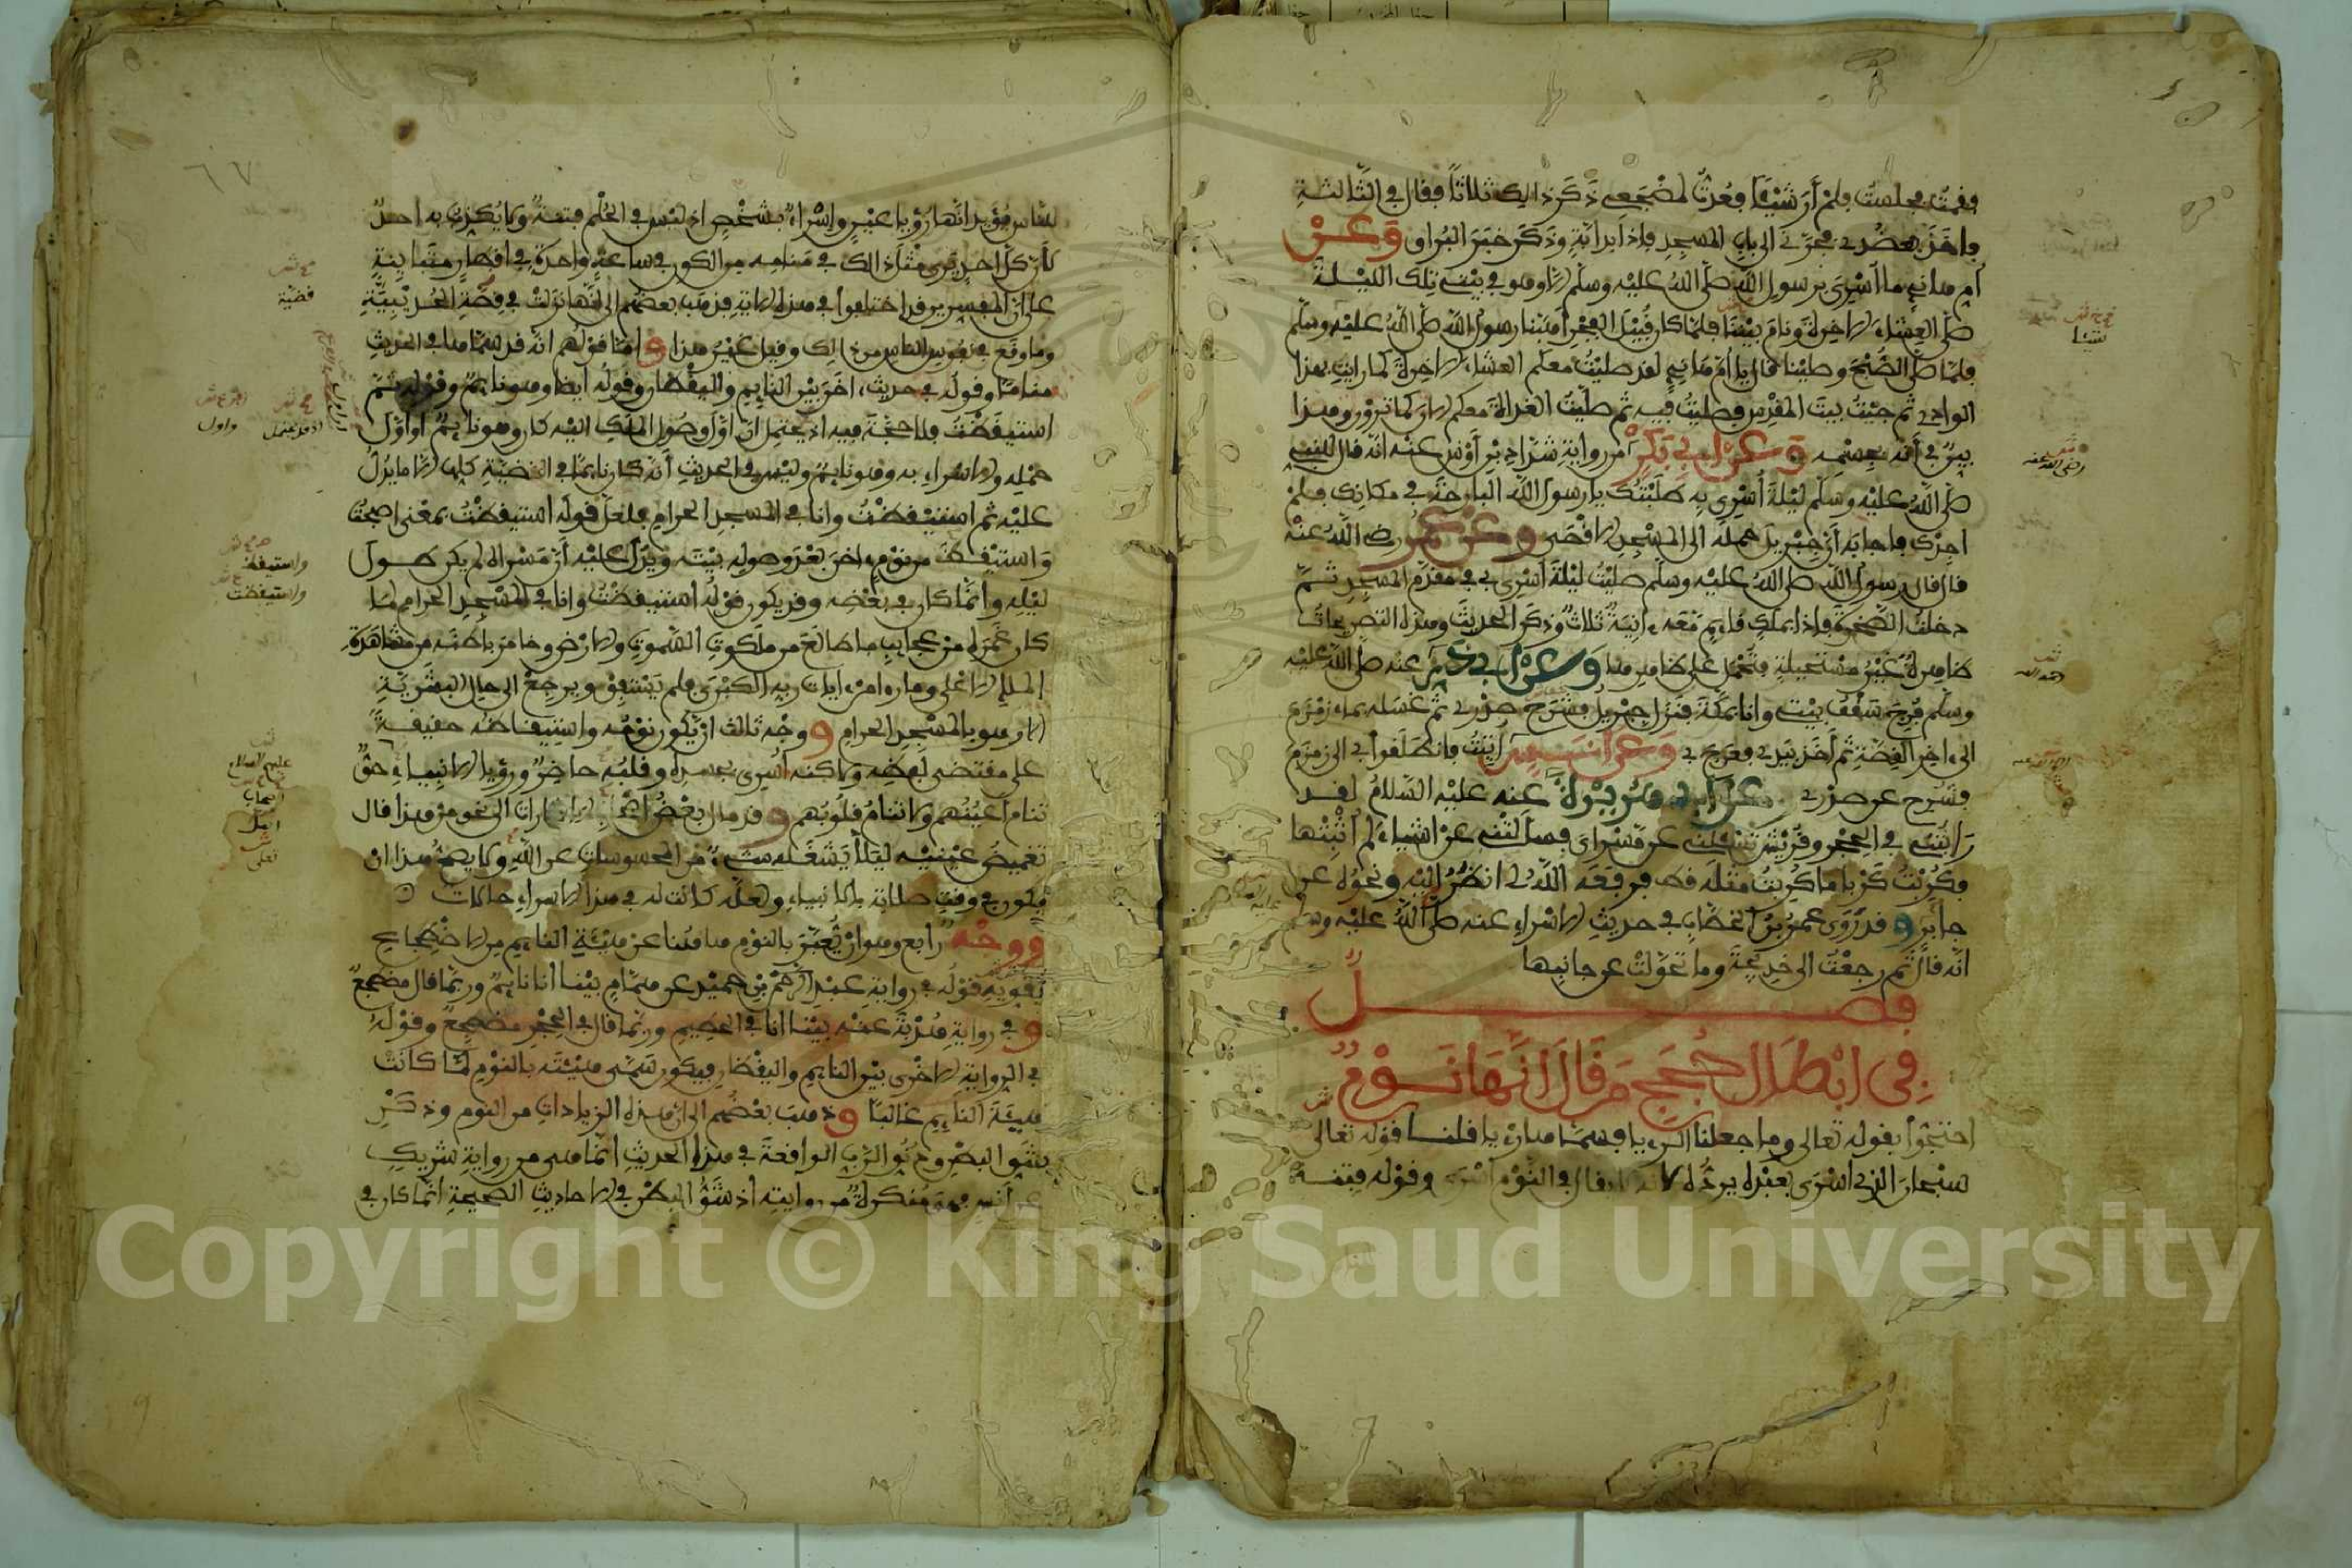 فقمت فجلست فلم أر شيئا فعدت لمضجعي ذكر ذالك ثلاثا فقال في الثالثة
فأخذ بعضدي فجرني الى باب المسجد فإذا بدابة وذكر خبر البراق وعن
أم هانئ ما أسري برسول الله صلى الله عليه وسلم إلا وهو في بيتي تلك الليلة
صلى العشاء الاخرة ونام بيننا فلما كان قبيل الفجر أهبنا رسول الله صلى الله عليه وسلم
فلما صلى الصبح وصلينا قال يا أم هانئ لقد صليت معكم العشاء الاخرة كما رأيت بهذا
الوادي ثم جئت بيت المقدس فصليت فيه ثم صليت الغداة معكم الان كما ترون وهذا
بين في أنه بجسمه وعن أبي بكر من رواية شداد بن أوس عنه أنه قال للنبي
صلى الله عليه وسلم ليلة أسري به طلبتك يا رسول الله البارحة في مكانك فلم
أجدك فأجابه أن جبريل حمله الى المسجد الاقصى وعن عمر رضي الله عنه
قال قال رسول الله صلى الله عليه وسلم صليت ليلة أسري بي في مقدم المسجد ثم
دخلت الصخرة فإذا بملك قائم معه ءانية ثلاث وذكر الحديث وهذه التصريحات
ظاهرة غير مستحيلة فتحمل على ظاهرها وعن أبي ذر عنه صلى الله عليه
وسلم فرج سقف بيتي وأنا بمكة فنزل جبريل فشرح صدري ثم غسله بماء زمزم
الى ءاخر القصة ثم أخذ بيدي فعرج بي وعن أنس أتيت فانطلقوا بي الى زمزم
فشرح عن صدري وعن أبي هريرة عنه عليه السلام لقد
رأيتني في الحجر وقريش تسئلني عن مسراي فسألتني عن أشياء لم أثبتها
فكربت كربا ما كربت مثله قط فرفعه الله لي انظر إليه ونحوه عن
جابر وقد روى عمر بن الخطاب في حديث الاسراء عنه صلى الله عليه وسلم
أنه قال ثم رجعت الى خديجة وما تحولت عن جانبها
فصل
في ابطال حجج من قال انها نوم
احتجوا بقوله تعالى وما جعلنا الرءيا فسماها رءيا قلنا قوله تعالى
سبحان الذي أسرى بعبده يرده لأنه لا يقال في النوم أسرى وقوله فتنة
شيئا
رضي الله عنه
للناس يؤيد أنها رؤيا عين وإسراء بشخص اذ ليس في الحلم فتنة ولا يكذب به أحد
لأن كل أحد يرى مثل ذالك في منامه من الكون في ساعة واحدة في أقطار متباينة
على أن المفسرين قد اختلفوا في هذه الاية فذهب بعضهم الى أنها نزلت في قصة الحديبية
وما وقع في نفوس الناس من ذالك وقيل غير هذا وأما قولهم انه قد سماها في الحديث
مناما وقوله في حديث ءاخر بين النائم واليقظان وقوله أيضا وهو نائم وقوله ثم
استيقظت فلا حجة فيه اذ يحتمل ان أول وصول الملك اليه كان وهو نائم أو أول
حمله والاسراء به وهو نائم وليس في الحديث أنه كان نائما في القضية كلها إلا ما يدل
عليه ثم استيقظت وأنا في المسجد الحرام فلعل قوله استيقظت بمعنى أصبحت
واستيقظ من نوم ءاخر بعد وصوله بيته ويدل عليه أن مسراه لم يكن طول
ليله وأنما كان في بعضه وقد يكون قوله استيقظت وأنا في المسجد الحرام لما
كان غمره من عجايب ما طالع من ملكوت السموات والارض وخامر باطنه من مشاهدة
الملإ الاعلى وما رأى من ءايات ربه الكبرى فلم يستفق ويرجع الى حال البشرية
الا وهو بالمسجد الحرام ووجه ثالث ان يكون نومه واستيقاظه حقيقة
على مقتضى لفظه ولاكنه أسري بجسده وقلبه حاضر ورؤيا الانبياء حق
تنام أعينهم ولا تنام قلوبهم وقد مال بعض أهل الاشارات الى نحو من هذا قال
تغميض عينيه ليلا يشغله شيء من المحسوسات عن الله ولا يصح هذا ان
يكون في وقت صلاته بالانبياء ولعله كانت له في هذا الاسراء حالات
ووجه رابع وهو ان يعبر بالنوم هاهنا عن هيئة النائم من الاضطجاع
يقويه قوله في رواية عبد بن حميد عن همام بينا أنا نائم وربما قال مضطجع
وفي رواية هدبة عنه بينا أنا في الحطيم وربما قال في الحجر مضطجع وقوله
في الرواية الاخرى بين النائم واليقظان فيكون سمى هيئته بالنوم لما كانت
هيئة النائم غالبا وذهب بعضهم الى ان هذه الزيادات من النوم وذكر
شق البطن ودنو الرب الواقعة في هذا الحديث انما هي من رواية شريك
عن أنس فهي منكرة من روايته اذ شق البطن في الاحاديث الصحيحة انما كان في
قضية
واول
اذ قد يحتمل
واستيقظ
واستيقظت
عليهم السلام
اصحاب
اهل
تعلى
٦٧
Copyright © King Saud University